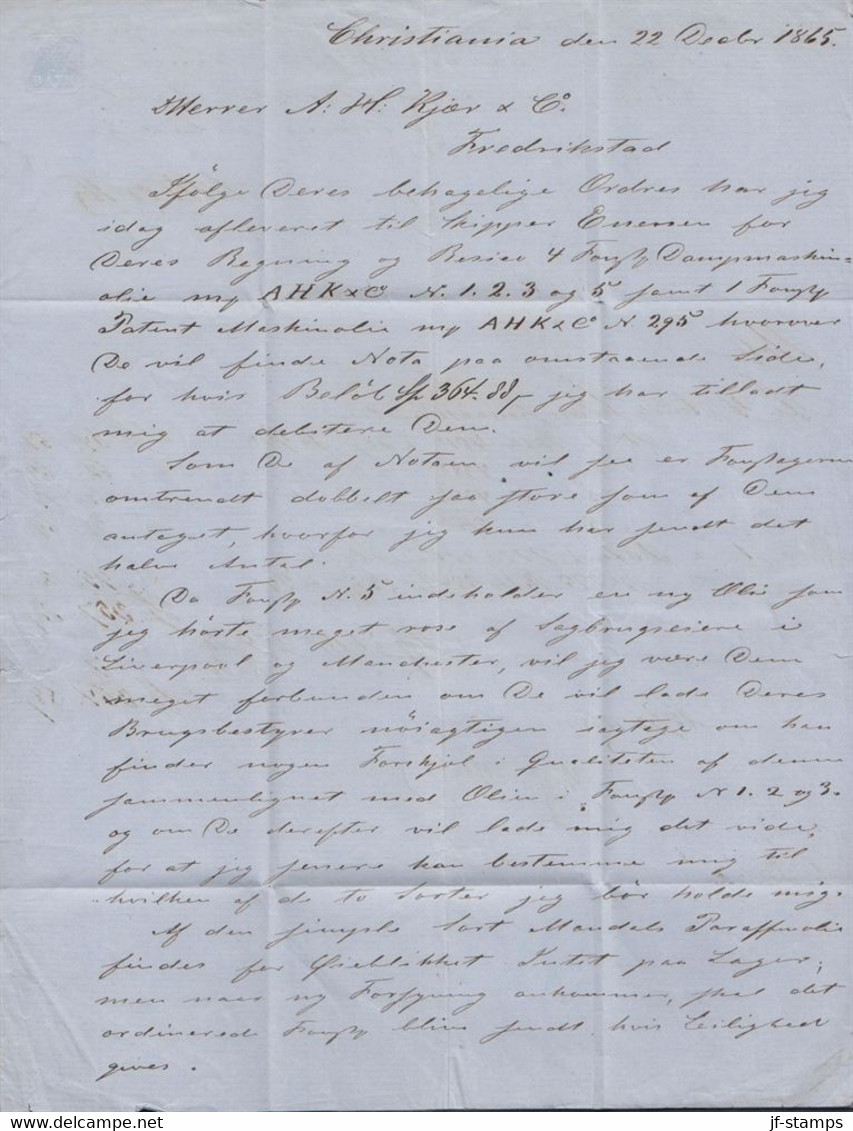 BATH
Christiania den 22 Decbr 1865.
Herrer A: H: Kjær & Co.
Fredrikstad
Ifölge Deres behagelige Ordres har jeg
idag afleveret til Skipper Enersen for
Deres Regning og Resico 4 Dampmaskin=
olie AHK&Co N. 1. 2. 3 og 5 samt 1
Patent Maskinolie AHK&Co N. 295 hvorover
De vil finde Nota paa omstaaende Side,
for hvis Belöb 364. 88 jeg har tilladt
mig at debitere Dem.
Som De af Notaen vil see er Fustagerne
omtrendt dobbelt saa store som af Dem
antaget, hvorfor jeg kun har sendt det
halve Antal.
Da N. 5 indeholder en ny Olie som
jeg hörte meget rose af Sagbrugseiere i
Liverpool og Manchester, vil jeg være Dem
meget forbunden om De vil lade Deres
Brugsbestyrer nöiagtigen iagtage om han
finder nogen Forskjel i Qualiteten af denne
sammenlignet med Olien i N 1. 2 og 3.
og om De derefter vil lade mig det vide,
for at jeg senere kan bestemme mig til
hvilken af de to Sorter jeg bör holde mig.
Af den simple Sort Mandals Paraffinolie
findes for Öieblikket Intet paa Lager,
men naar ny Forsyning ankommer, skal det
ordinerede blive sendt, hvis Leilighed
gives.
jf-stamps
www.delcampe.net